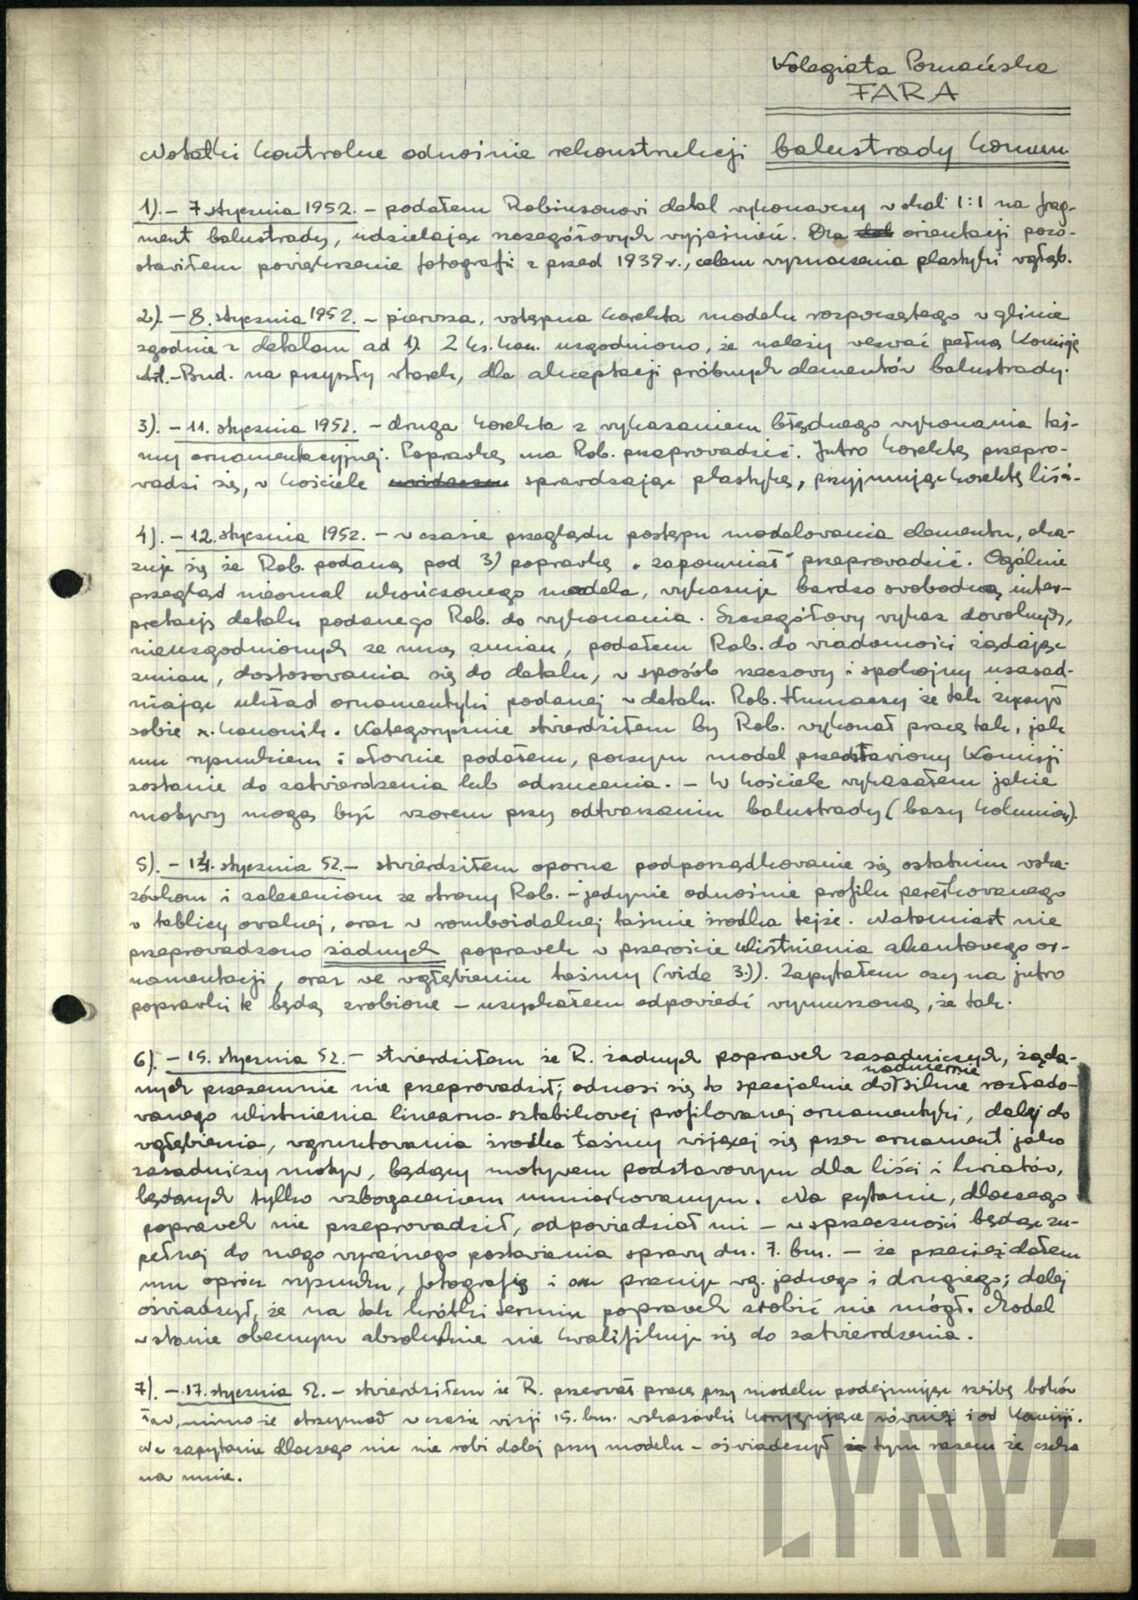 Kolegiata Poznańska
FARA
Notatki kontrolne odnośnie rekonstrukcji balustrady komun.
1). – 7 stycznia 1952. – podałem Robinsonovi detal wykonawczy w skali 1:1 na frag-
ment balustrady, udzielając szczegółowych wyjaśnień. Dla orientacji pozo-
stawiłem powiększenie fotografii z przed 1939 r., celem wyznaczenia plastyki wgłęb.
2). – 8. stycznia 1952. – pierwsza, wstępna korekta modelu rozpoczętego w glinie
zgodnie z detalem ad 1). Z ks. kan. uzgodniono, że należy wezwać pełną Komisję
Art.-Bud. na przyszły wtorek, dla akceptacji próbnych elementów balustrady.
3). – 11. stycznia 1952. – druga korekta z wykazaniem błędnego wykonania taś-
my ornamentacyjnej. Poprawkę ma Rob. przeprowadzić. Jutro korektę przepro-
wadzi się, w kościele sprawdzając plastykę, przyjmując korektę liści.
4). – 12. stycznia 1952. – w czasie przeglądu postępu modelowania elementu, oka-
zuje się że Rob. podaną pod 3) poprawkę „zapomniał" przeprowadzić. Ogólnie
przegląd nieomal ukończonego modelu, wykazuje bardzo swobodną inter-
pretację detalu podanego Rob. do wykonania. Szczegółowy wykaz dowolnych,
nieuzgodnionych ze mną zmian, podałem Rob. do wiadomości żądając
zmian, dostosowania się do detalu, w sposób rzeczowy i spokojny uzasad-
niając układ ornamentyki podanej w detalu. Rob. tłumaczy że tak życzył
sobie x. kanonik. Kategorycznie stwierdziłem by Rob. wykonał pracę tak, jak
mu rysunkiem i słownie podałem, poczym model przedstawiony Komisji
zostanie do zatwierdzenia lub odrzucenia. – W kościele wykazałem jakie
motywy mogą być wzorem przy odtwarzaniu balustrady (bazy kolumien).
5). – 14. stycznia 52. – stwierdziłem oporne podporządkowanie się ostatnim wska-
zówkom i zaleceniom ze strony Rob. – jedynie odnośnie profilu perełkowanego
w tablicy owalnej, oraz w romboidalnej taśmie środka tejże. Natomiast nie
przeprowadzono żadnych poprawek w przeroście ulistnienia akantowego or-
namentacji, oraz we wgłębieniu taśmy (vide 3.)). Zapytałem czy na jutro
poprawki te będą zrobione – uzyskałem odpowiedź wymuszoną, że tak.
6). – 15. stycznia 52. – stwierdziłem że R. żadnych poprawek zasadniczych, żąda-
nych przezemnie nie przeprowadził; odnosi się to specjalnie do nadmiernie silnie rozbudo-
wanego ulistnienia linearno-sztabikowej profilowanej ornamentyki, dalej do
wgłębienia, wgruntowania środka taśmy wijącej się przez ornament jako
zasadniczy motyw, będący motywem podstawowym dla liści i kwiatów,
będących tylko wzbogaceniem umiarkowanym. Na pytanie, dlaczego
poprawek nie przeprowadził, odpowiedział mi – w sprzeczności będąc zu-
pełnej do mego wyraźnego postawienia sprawy dn. 7. bm. – że przecież dałem
mu oprócz rysunku, fotografię i on pracuje wg. jednego i drugiego; dalej
oświadczył, że na tak krótki termin poprawek zrobić nie mógł. Model
w stanie obecnym absolutnie nie kwalifikuje się do zatwierdzenia.
7). – 17. stycznia 52. – stwierdziłem że R. przerwał pracę przy modelu podejmując rzeźbę boków
ław, mimo że otrzymał w czasie wizji 15. bm. wskazówki korygujące również i od Komisji.
Na zapytanie dlaczego nic nie robi dalej przy modelu – oświadczył tym razem że czeka
na mnie.
CYRYL